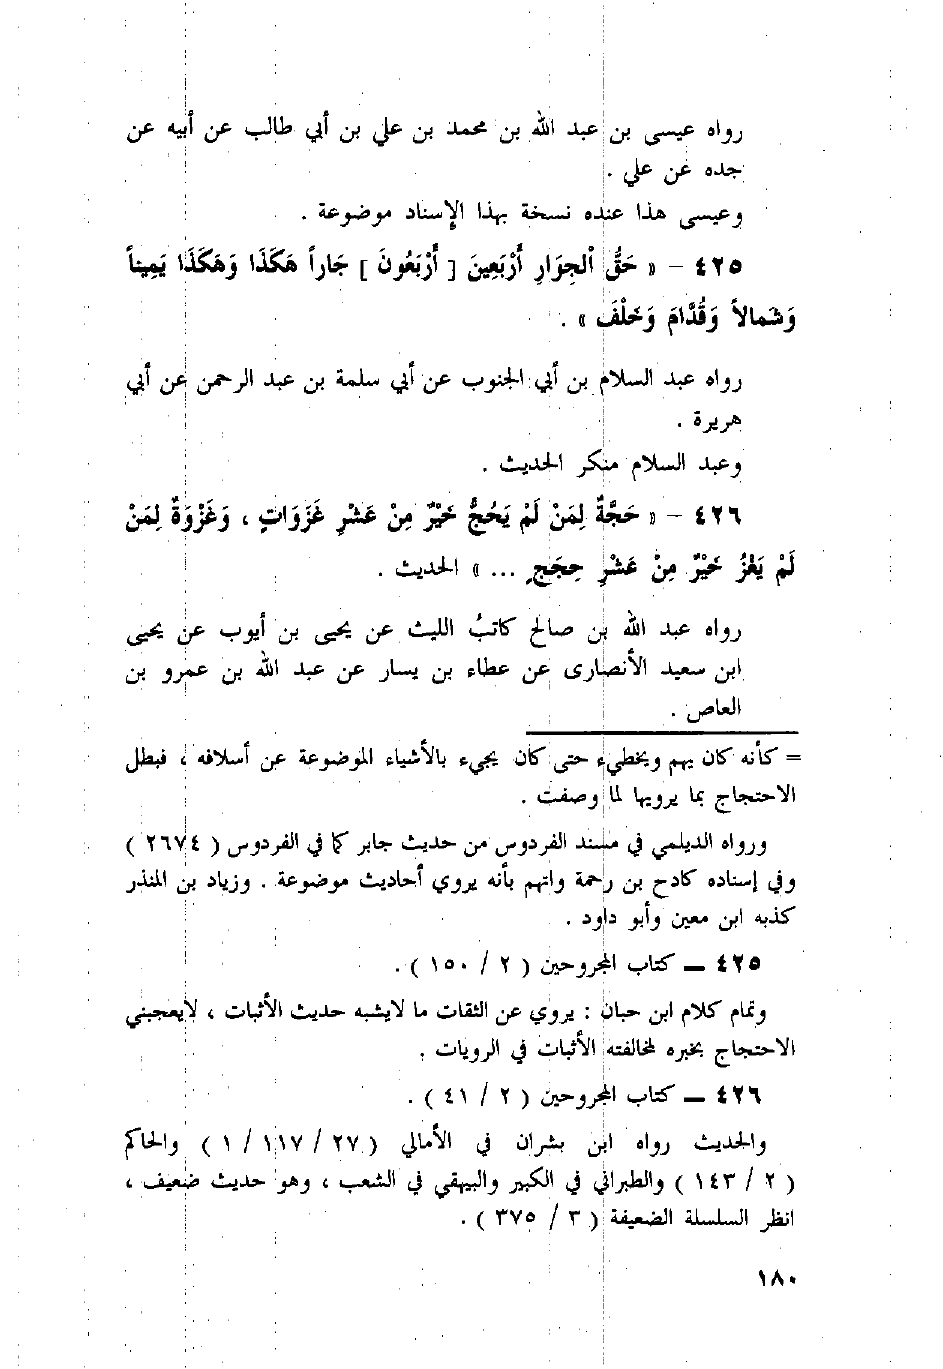 رواه عيسى بن عبد الله بن محمد بن علي بن أبي طالب عن أبيه عن
جده عن علي .
وعيسى هذا عنده نسخة بهذا الإسناد موضوعة .
٤٢٥ – « حَقُّ ٱلجِوَارِ أَرْبَعِينَ [ أَرْبَعُونَ ] جَاراً هَكَذَا وَهَكَذَا يَمِيناً
وَشَمالاً وَقُدَّامَ وَخَلْفَ » .
رواه عبد السلام بن أبي الجنوب عن أبي سلمة بن عبد الرحمن عن أبي
هريرة .
وعبد السلام منكر الحديث .
٤٢٦ – « حَجَّةٌ لِمَنْ لَمْ يَحُجَّ خَيْرٌ مِنْ عَشْرِ غَزَوَاتٍ ، وَغَزْوَةٌ لِمَنْ
لَمْ يَغْزُ خَيْرٌ مِنْ عَشْرِ حِجَجٍ ... » الحديث .
رواه عبد الله بن صالح كاتبُ الليث عن يحيى بن أيوب عن يحيى
ابن سعيد الأنصارى عن عطاء بن يسار عن عبد الله بن عمرو بن
العاص .
= كأنه كان يهم ويخطيء حتى كان يجيء بالأشياء الموضوعة عن أسلافه ، فبطل
الاحتجاج بما يرويها لما وصفت .
ورواه الديلمي في مسند الفردوس من حديث جابر كما في الفردوس ( ٢٦٧٤ )
وفي إسناده كادح بن رحمة واتهم بأنه يروي أحاديث موضوعة . وزياد بن المنذر
كذبه ابن معين وأبو داود .
٤٢٥ – كتاب المجروحين ( ٢ / ١٥٠ ) .
وتمام كلام ابن حبان : يروي عن الثقات ما لايشبه حديث الأثبات ، لايعجبني
الاحتجاج بخبره لمخالفته الأثبات في الرويات .
٤٢٦ – كتاب المجروحين ( ٢ / ٤١ ) .
والحديث رواه ابن بشران في الأمالي ( ٢٧ / ١١٧ / ١ ) والحاكم
( ٢ / ١٤٣ ) والطبراني في الكبير والبيهقي في الشعب ، وهو حديث ضعيف ،
انظر السلسلة الضعيفة ( ٣ / ٣٧٥ ) .
١٨٠